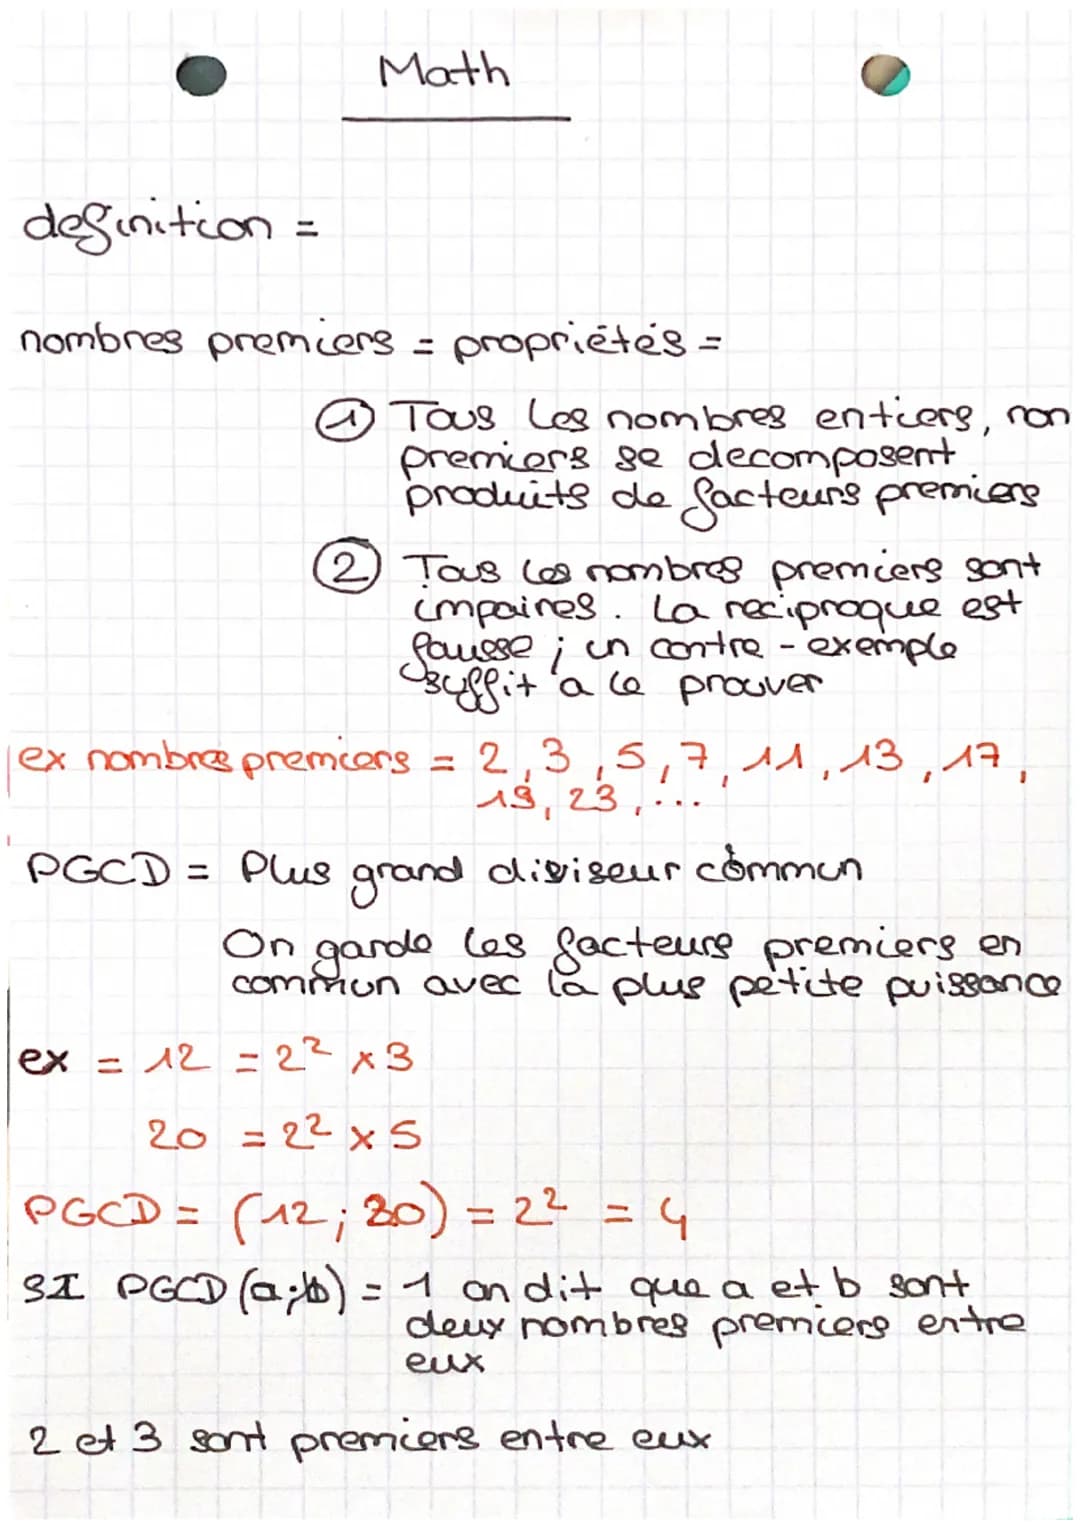 Math
definition =
nombres premiers = propriétés =
① Tous les nombres entiers, non
premiers se decomposent
produits de facteurs premiers
② Tous les nombres premiers sont
impaires. La reciproque est
fausse ; un contre-exemple
suffit a le prouver
ex nombres premiers = 2, 3, 5, 7, 11, 13, 17,
19, 23, ...
PGCD = Plus grand diviseur commun
On garde les facteurs premiers en
commun avec la plus petite puissance
ex = 12 = 2² x 3
20 = 2² x 5
PGCD = (12; 20) = 2² = 4
SI PGCD (a;b) = 1 on dit que a et b sont
deux nombres premiers entre
eux
2 et 3 sont premiers entre eux